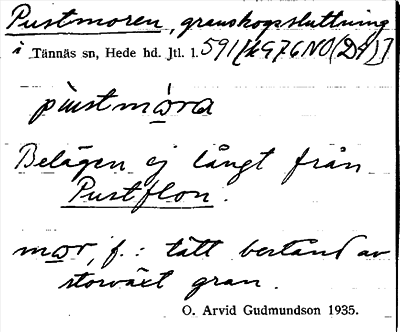 Pustmoren, granskogssluttning
i Tännäs sn, Hede hd. Jtl. l. 591 [49G7GNO(D4)]
Belägen ej långt från
Pustflon.
mor, f.: tätt bestånd av
storväxt gran.
O. Arvid Gudmundson 1935.